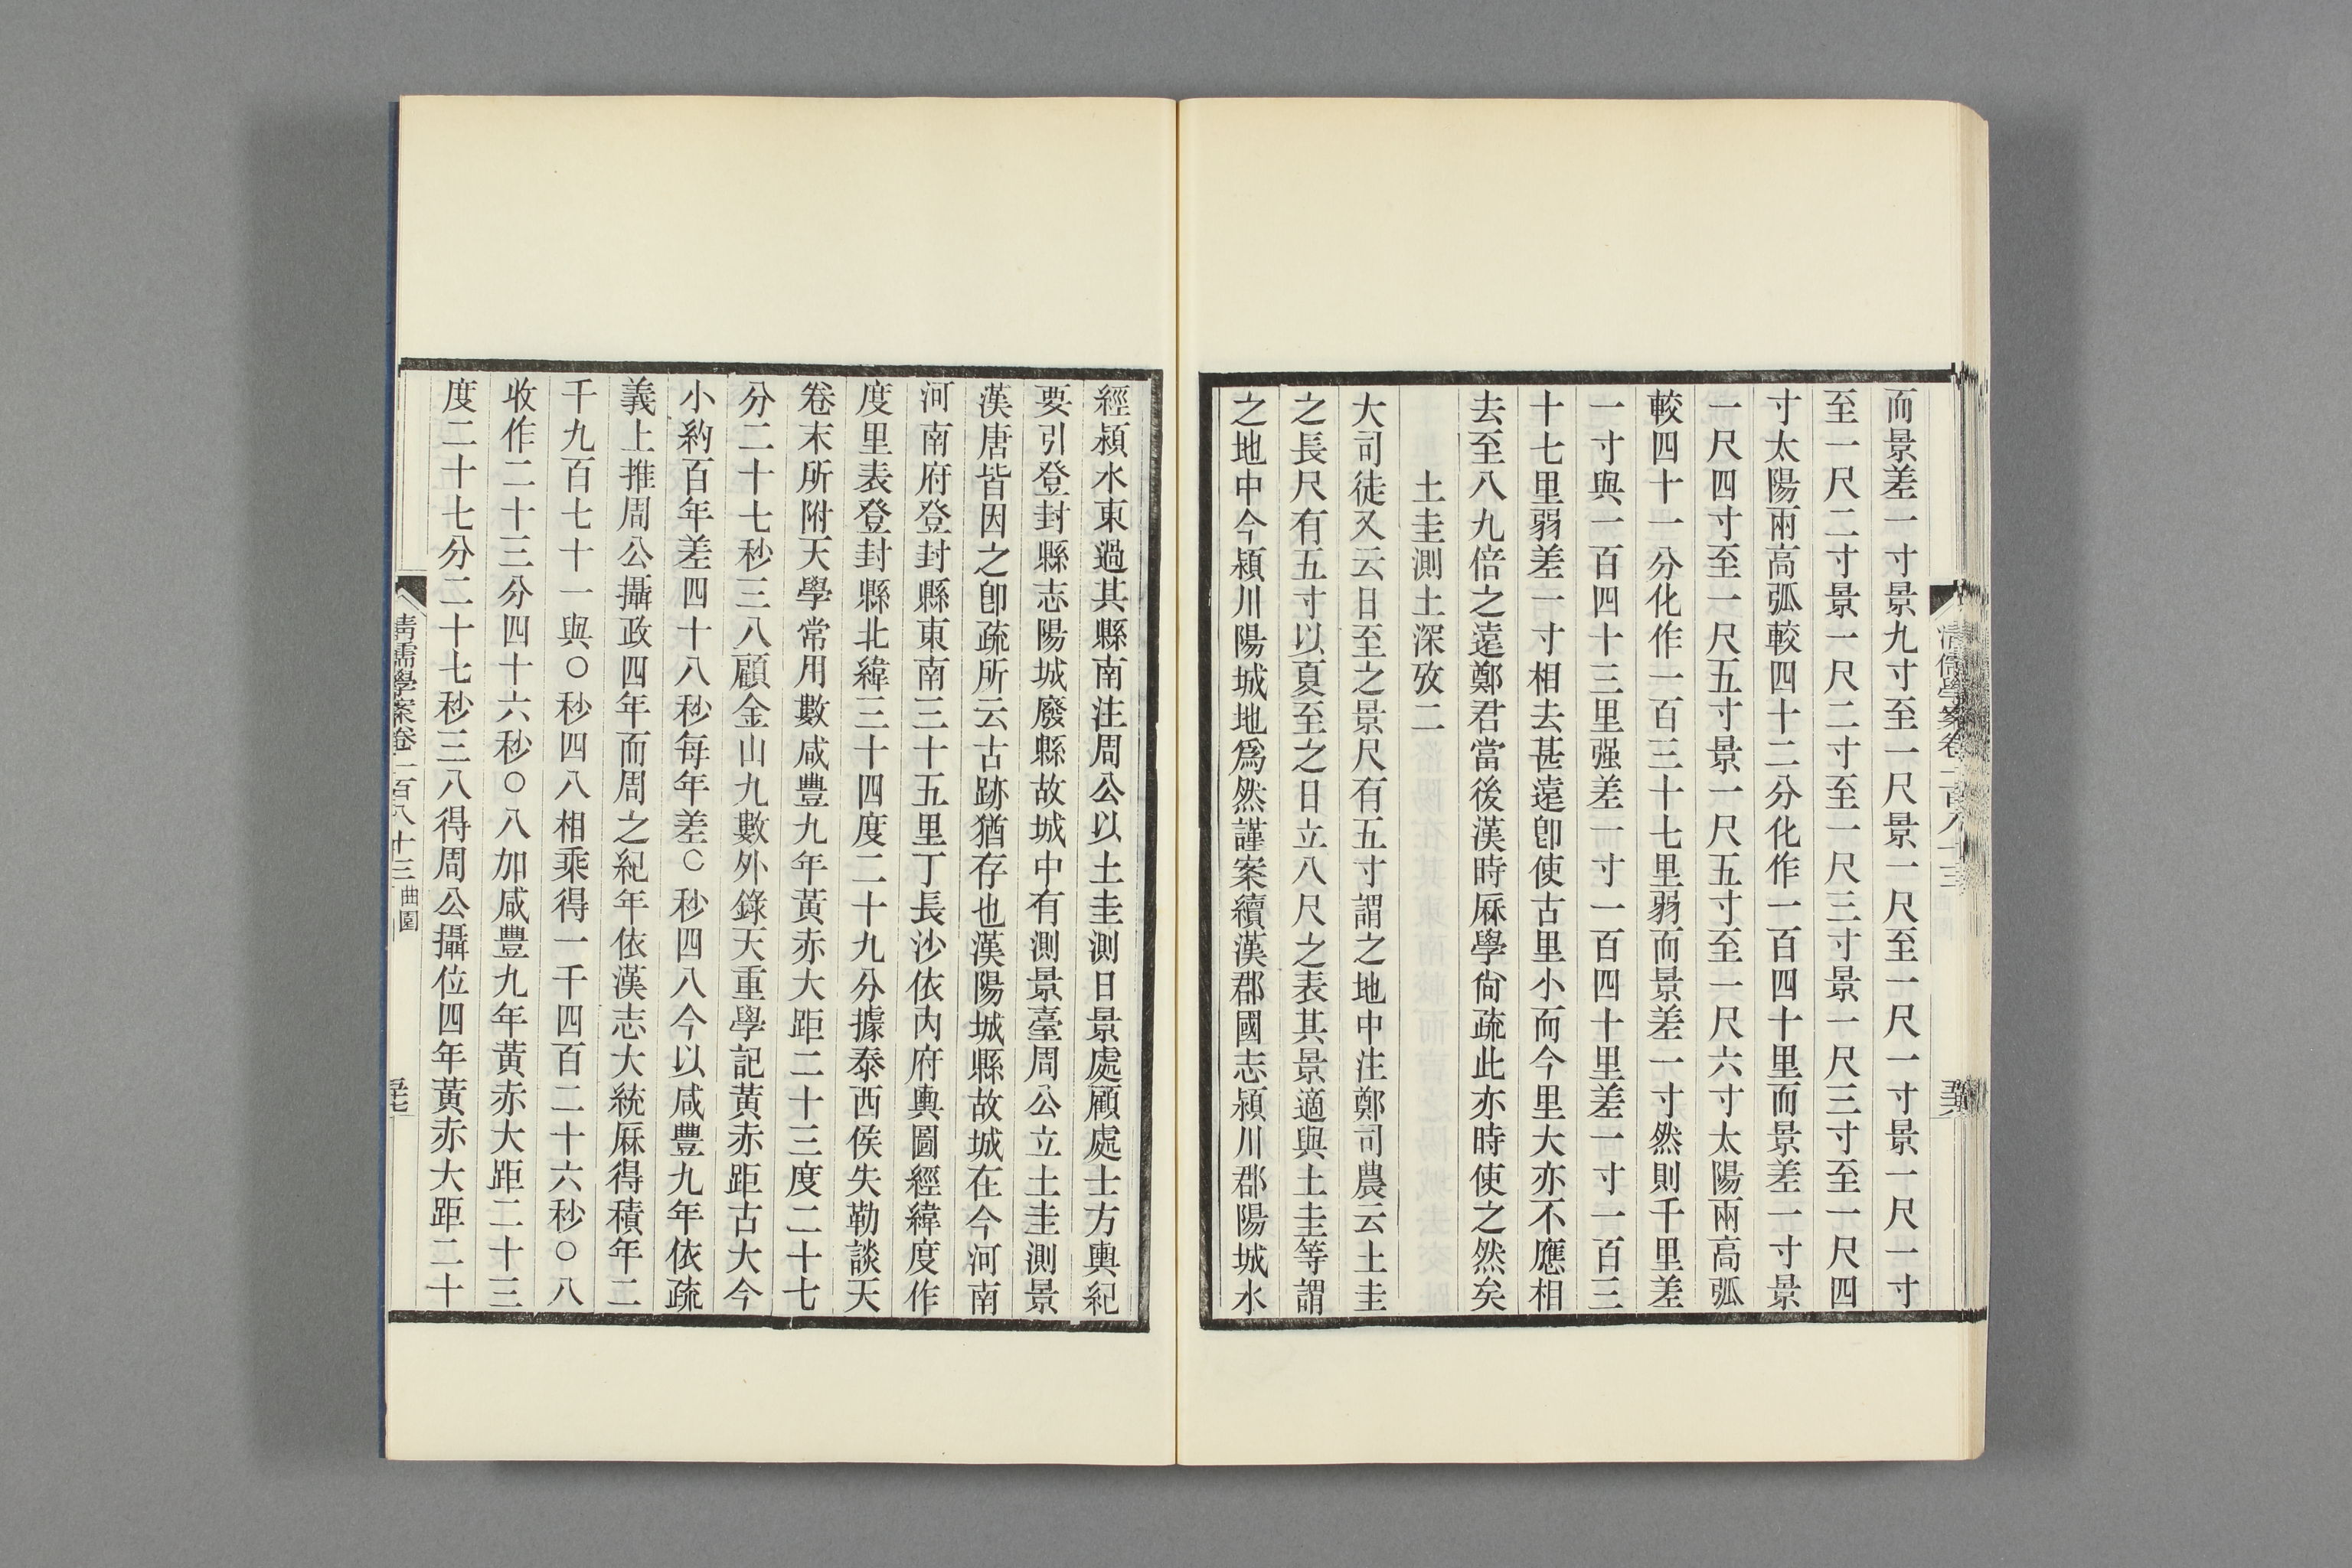 而景差一寸景九寸至一尺景一尺至一尺一寸景一尺一寸
至一尺二寸景一尺二寸至一尺三寸景一尺三寸至一尺四
寸太陽兩高弧較四十二分化作一百四十里而景差一寸景
一尺四寸至一尺五寸景一尺五寸至一尺六寸太陽兩高弧
較四十一分化作一百三十七里弱而景差一寸然則千里差
一寸與一百四十三里强差一寸一百四十里差一寸一百三
十七里弱差一寸相去甚遠卽使古里小而今里大亦不應相
去至八九倍之遠鄭君當後漢時厤學尙疏此亦時使之然矣
土圭測土深攷二
大司徒又云日至之景尺有五寸謂之地中注鄭司農云土圭
之長尺有五寸以夏至之日立八尺之表其景適與土圭等謂
之地中今潁川陽城地爲然謹案續漢郡國志潁川郡陽城水
經潁水東過其縣南注周公以土圭測日景處顧處士方輿紀
要引登封縣志陽城廢縣故城中有測景臺周公立土圭測景
漢唐皆因之卽疏所云古跡猶存也漢陽城縣故城在今河南
河南府登封縣東南三十五里丁長沙依內府輿圖經緯度作
度里表登封縣北緯三十四度二十九分據泰西侯失勒談天
卷末所附天學常用數咸豐九年黃赤大距二十三度二十七
分二十七秒三八顧金山九數外錄天重學記黃赤距古大今
小約百年差四十八秒每年差〇秒四八今以咸豐九年依疏
義上推周公攝政四年而周之紀年依漢志大統厤得積年二
千九百七十一與〇秒四八相乘得一千四百二十六秒〇八
收作二十三分四十六秒〇八加咸豐九年黃赤大距二十三
度二十七分二十七秒三八得周公攝位四年黃赤大距二十
清儒學案卷一百八十三 曲園